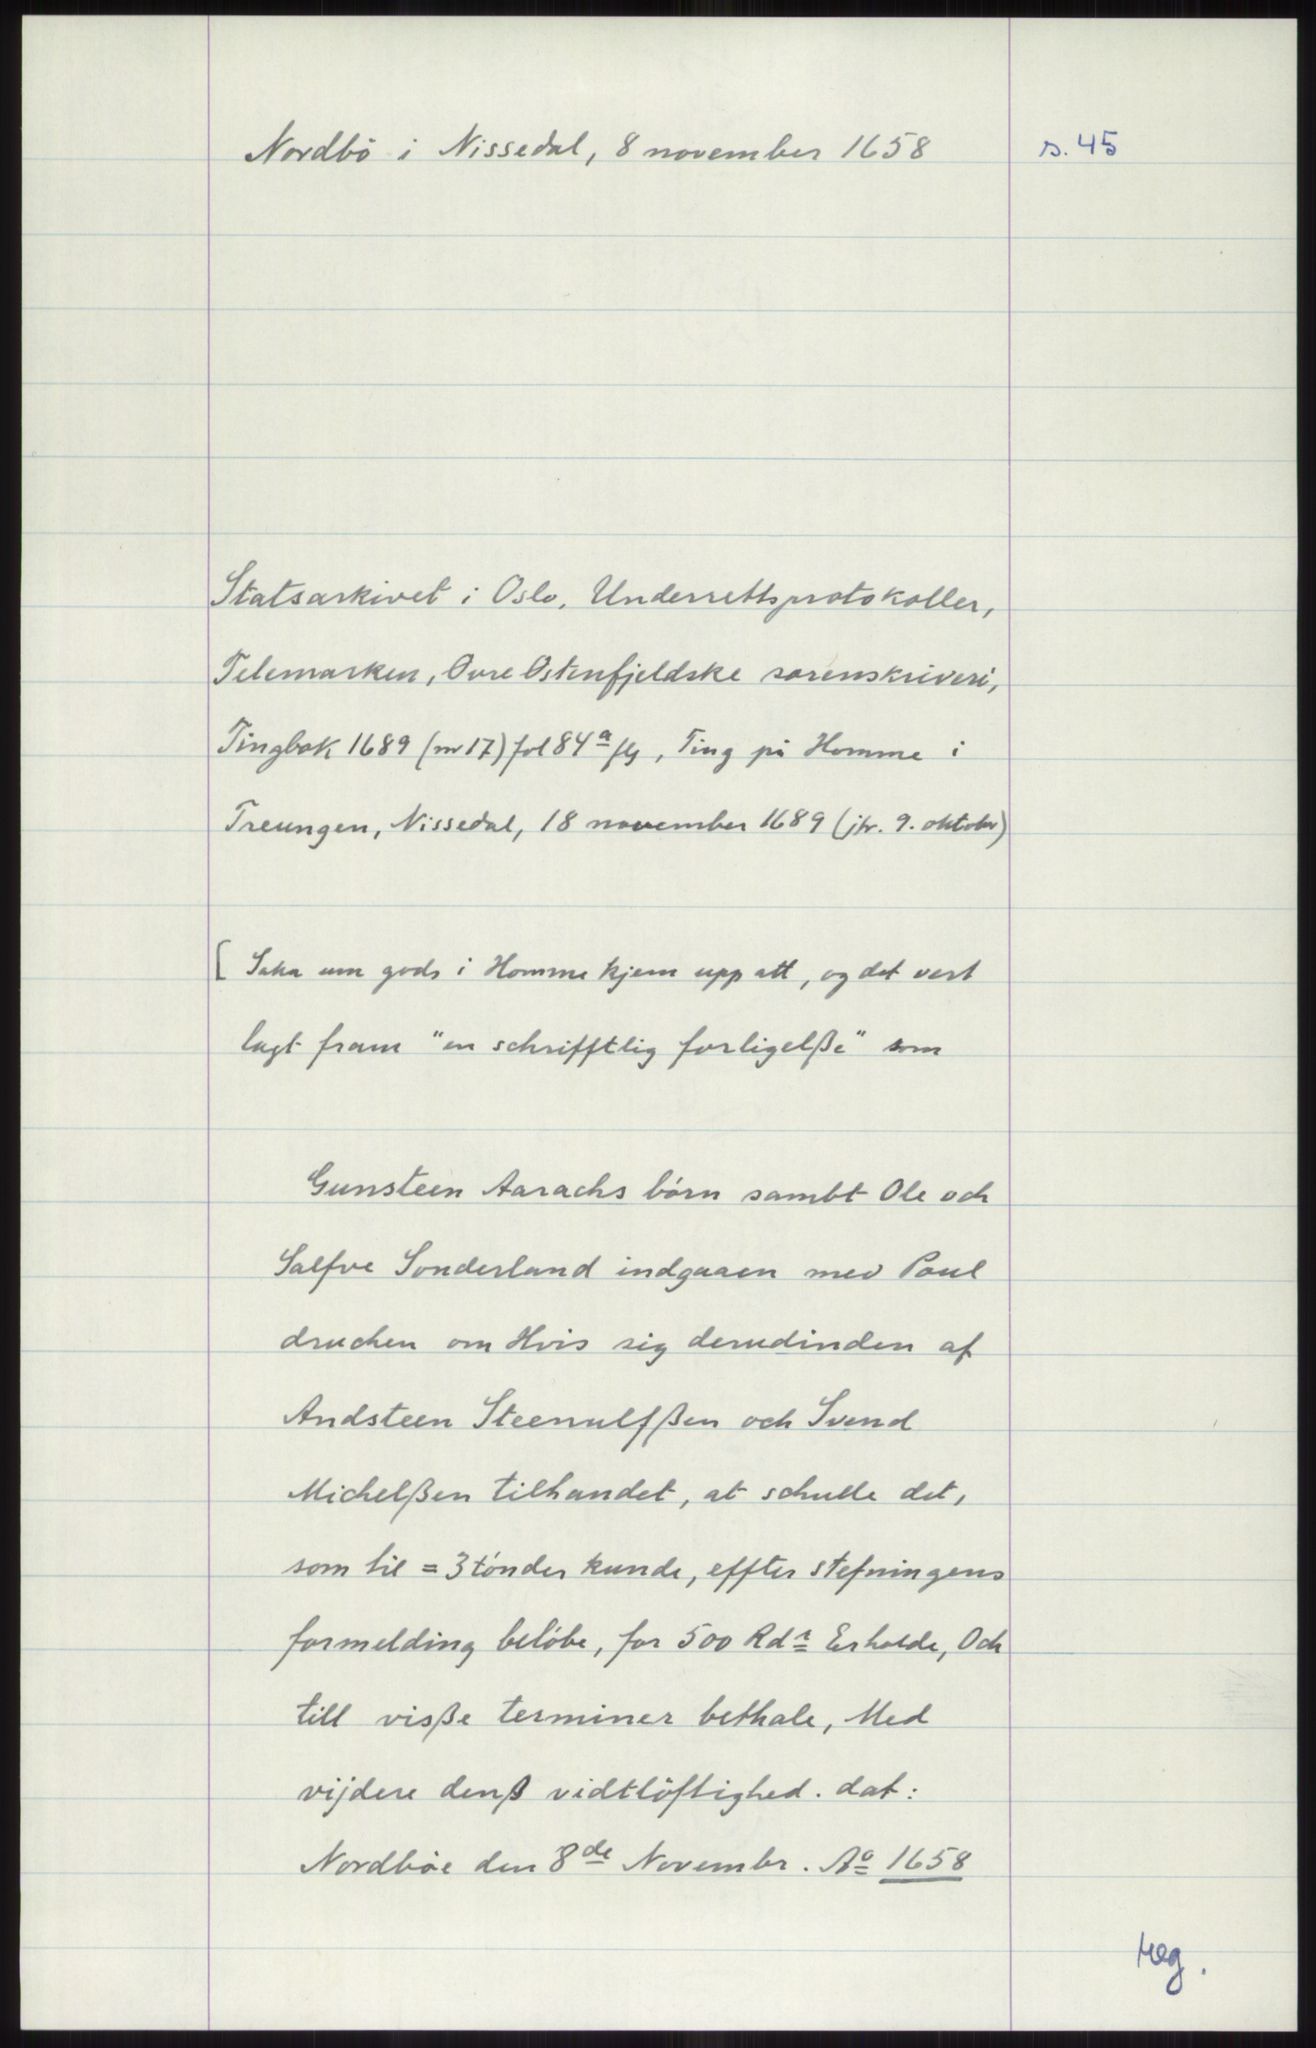 Nordbö i Nissedal, 8 november 1658
s. 45
Statsarkivet i Oslo, Underrettsprotokoller,
Telemarken, Øvre Østenfjeldske sorenskriveri,
Tingbok 1689 (nr 17) fol 84a flg, Ting på Homme i
Treungen, Nissedal, 18 november 1689 (jfr. 9. oktober)
[ Saka um gods i Homme kjem upp att, og det vert
lagt fram "en schrifftlig forligelße" som
Gunsteen Aarachs börn sambt Ole och
Salfve Sonderland indgaaen med Poul
druchen om Hvis sig derudinden af
Andsteen Steenulfßen och Svend
Michelßen tilhandet, at schulle det,
som til = 3 tönder kunde, effter stefningens
formelding belöbe, for 500 Rdr Erholde, Och
till visße terminer bethale, Med
vijdere denß vidtlöftighed. dat:
Nordböe den 8de Novembr. Ao 1658
Reg.